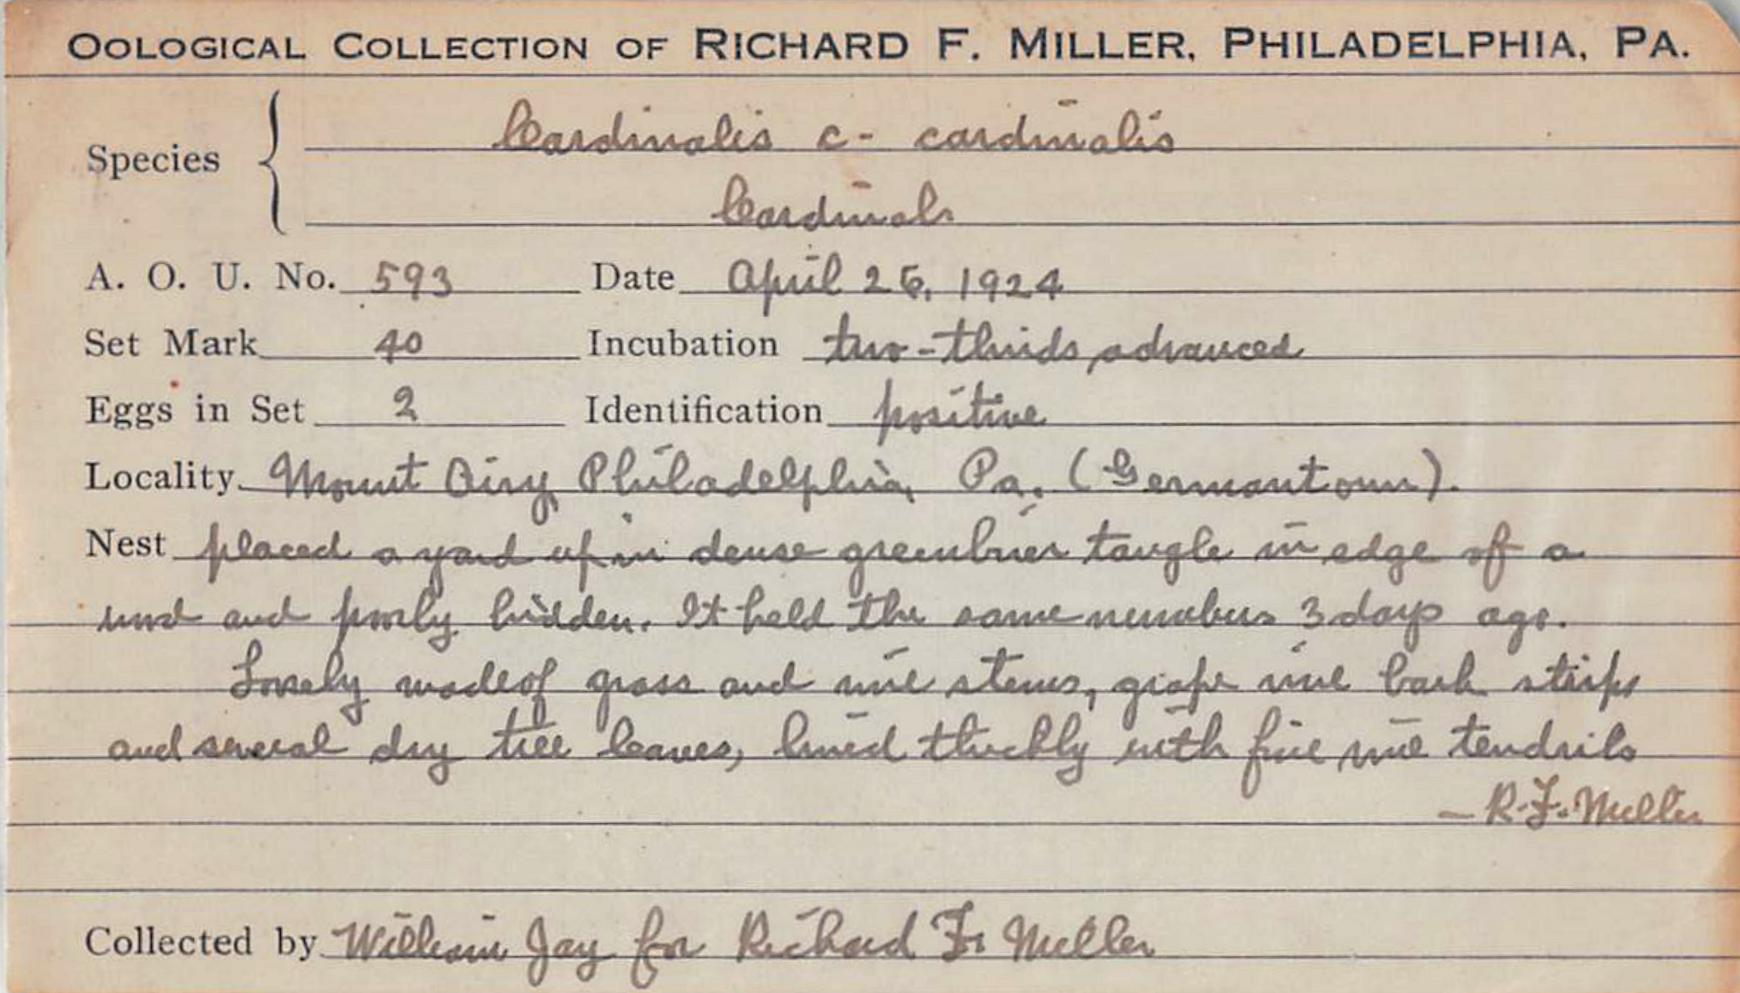 OOLOGICAL COLLECTION OF RICHARD F. MILLER, PHILADELPHIA, PA.
Species
Cardinalis c- cardinalis
Cardinal.
A. O. U. No. 593 Date April 26, 1924
Set Mark 40 Incubation two-thirds advanced
Eggs in Set 2 Identification positive
Locality Mount Airy, Philadelphia, Pa. (Germantown).
Nest placed a yard up in dense greenbrier tangle in edge of a
wood and poorly hidden. It held the same number 3 days ago.
Loosely made of grass and vine stems, grape vine bark strips
and several dry tree leaves, lined thickly with fine vine tendrils
— R. F. Miller
Collected by William Jay for Richard F. Miller